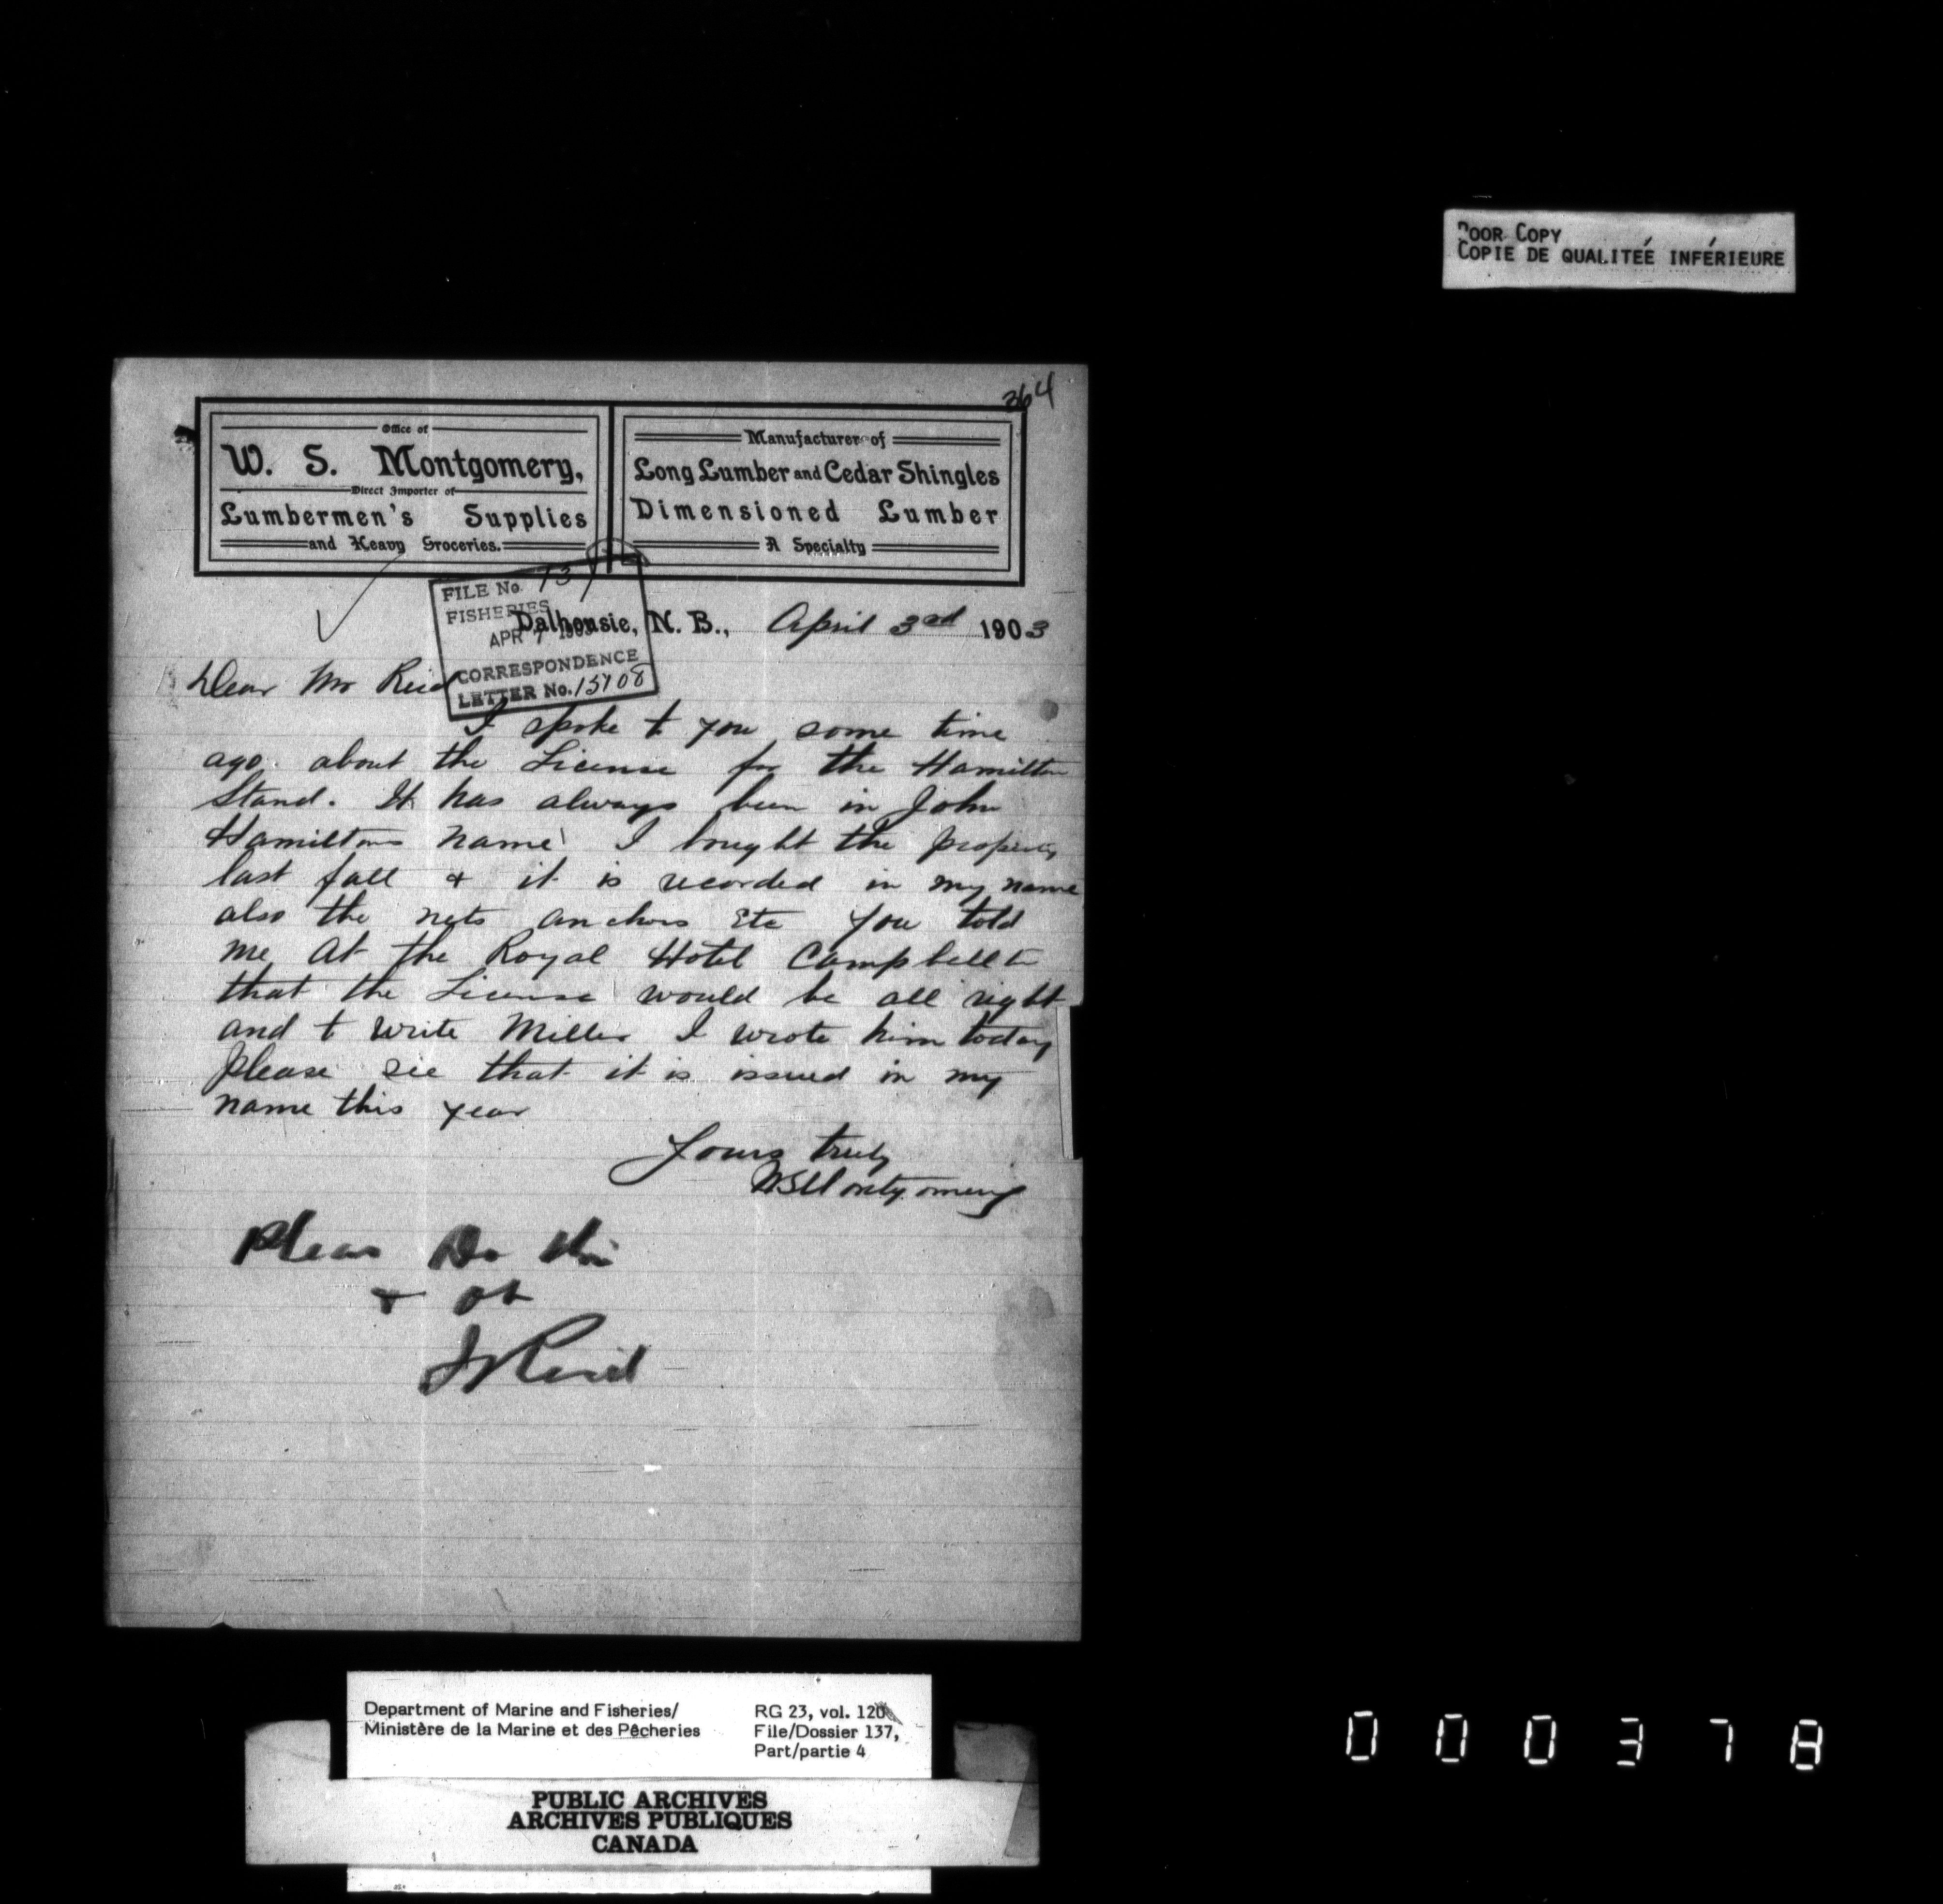 Poor Copy
Copie de qualiteé inférieure
364
Office of
W. S. Montgomery,
Direct Importer of
Lumbermen's Supplies
and Heavy Groceries.
Manufacturer of
Long Lumber and Cedar Shingles
Dimensioned Lumber
A Specialty
FILE No. 137
FISHERIES
APR 7 1903
CORRESPONDENCE
LETTER No.
Dalhousie, N. B., April 3rd 1903
Dear Mr Reid
I spoke t you some time
ago about the License for the Hamilton
Stand. It has always been in John
Hamiltons name I bought the property
last fall & it is recorded in my name
also the nets anchors Etc You told
me At the Royal Hotel Campbellt
that the License would be all right
and t write Miller I wrote him today
Please see that it is issued in my
name this year
Yours truly
WSMontgomery
Pleas Do this
& Ob
Reid
Department of Marine and Fisheries/
Ministère de la Marine et des Pêcheries
RG 23, vol. 120
File/Dossier 137,
Part/partie 4
PUBLIC ARCHIVES
ARCHIVES PUBLIQUES
CANADA
000378